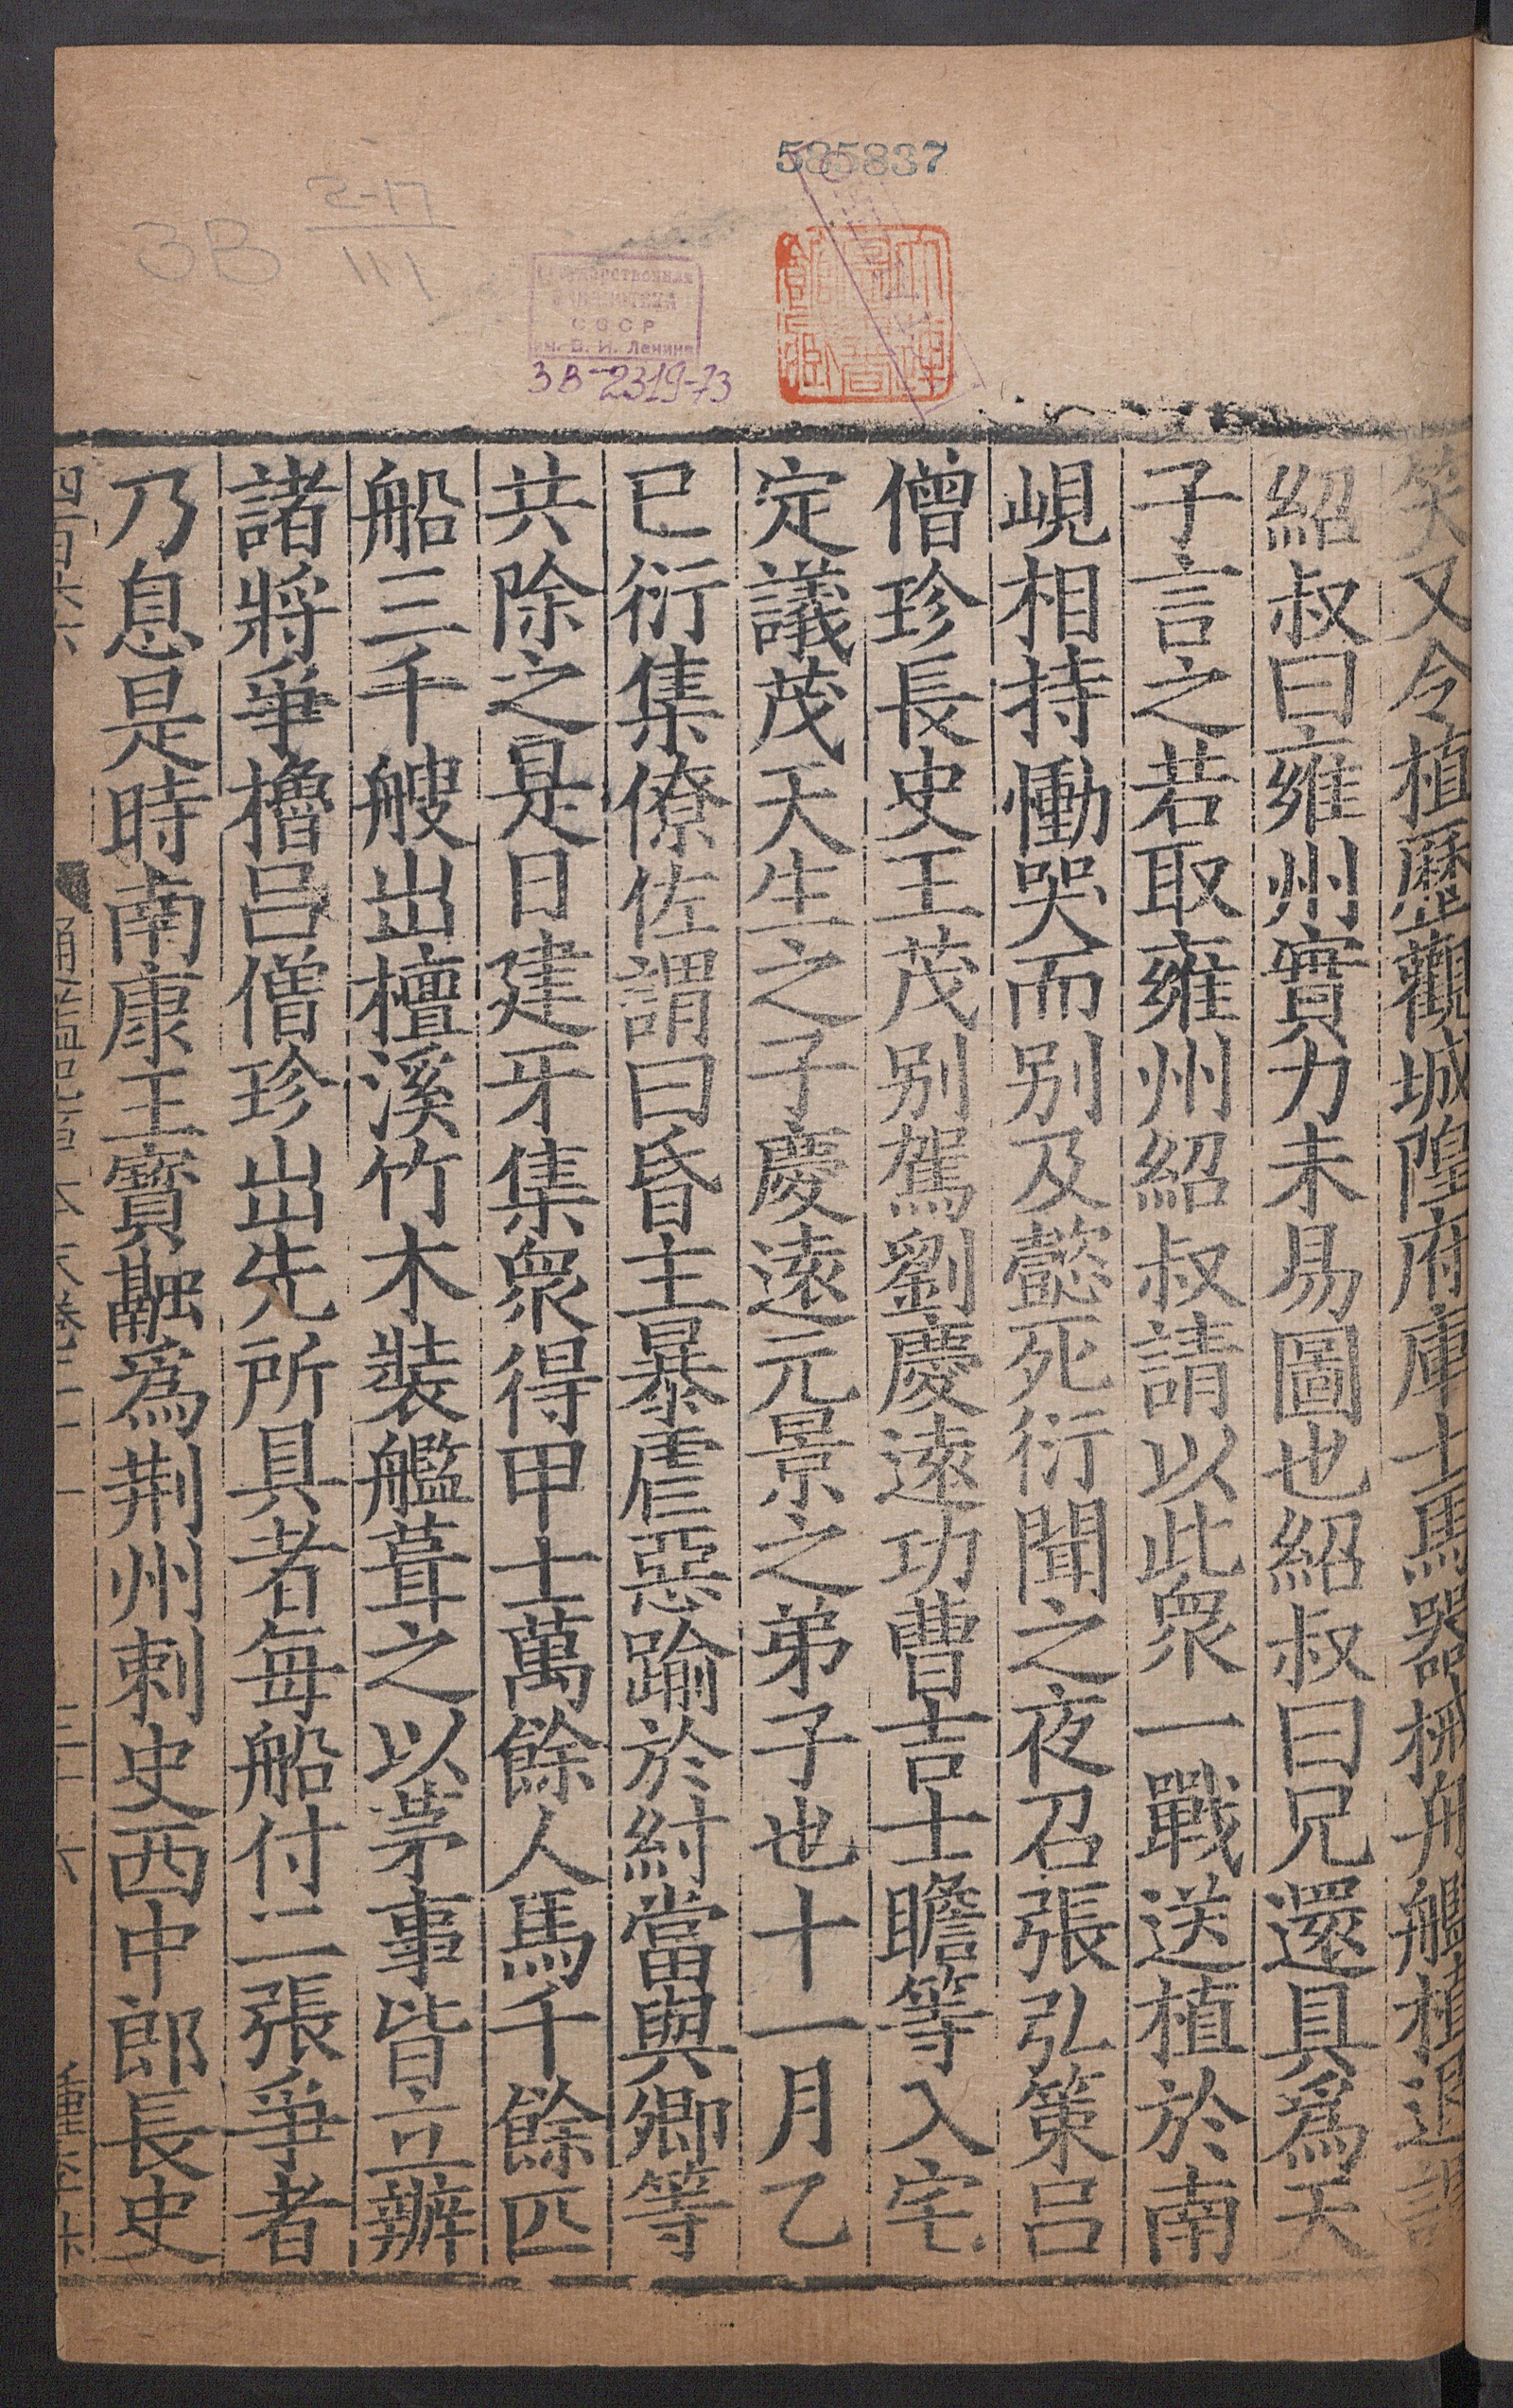 585837
3В 2-17
111
Государственная
БИБЛИОТЕКА
СССР
им. В. И. Ленина
3В-2319-73
笑又令植歷觀城隍府庫士馬器械舟艦植退謂
紹叔曰雍州實力未易圖也紹叔曰兄還具爲天
子言之若取雍州紹叔請以此衆一戰送植於南
峴相持慟哭而别及懿死衍聞之夜召張弘策吕
僧珍長史王茂别駕劉慶遠功曹吉士瞻等入宅
定議茂天生之子慶遠元景之弟子也十一月乙
巳衍集僚佐謂曰昏主暴虐惡踰於紂當與卿等
共除之是日建牙集衆得甲士萬餘人馬千餘匹
船三千艘出檀溪竹木裝艦葺之以茅事皆立辦
諸將爭櫓吕僧珍出先所具者每船付二張爭者
乃息是時南康王寶融爲荆州刺史西中郎長史
四百六六